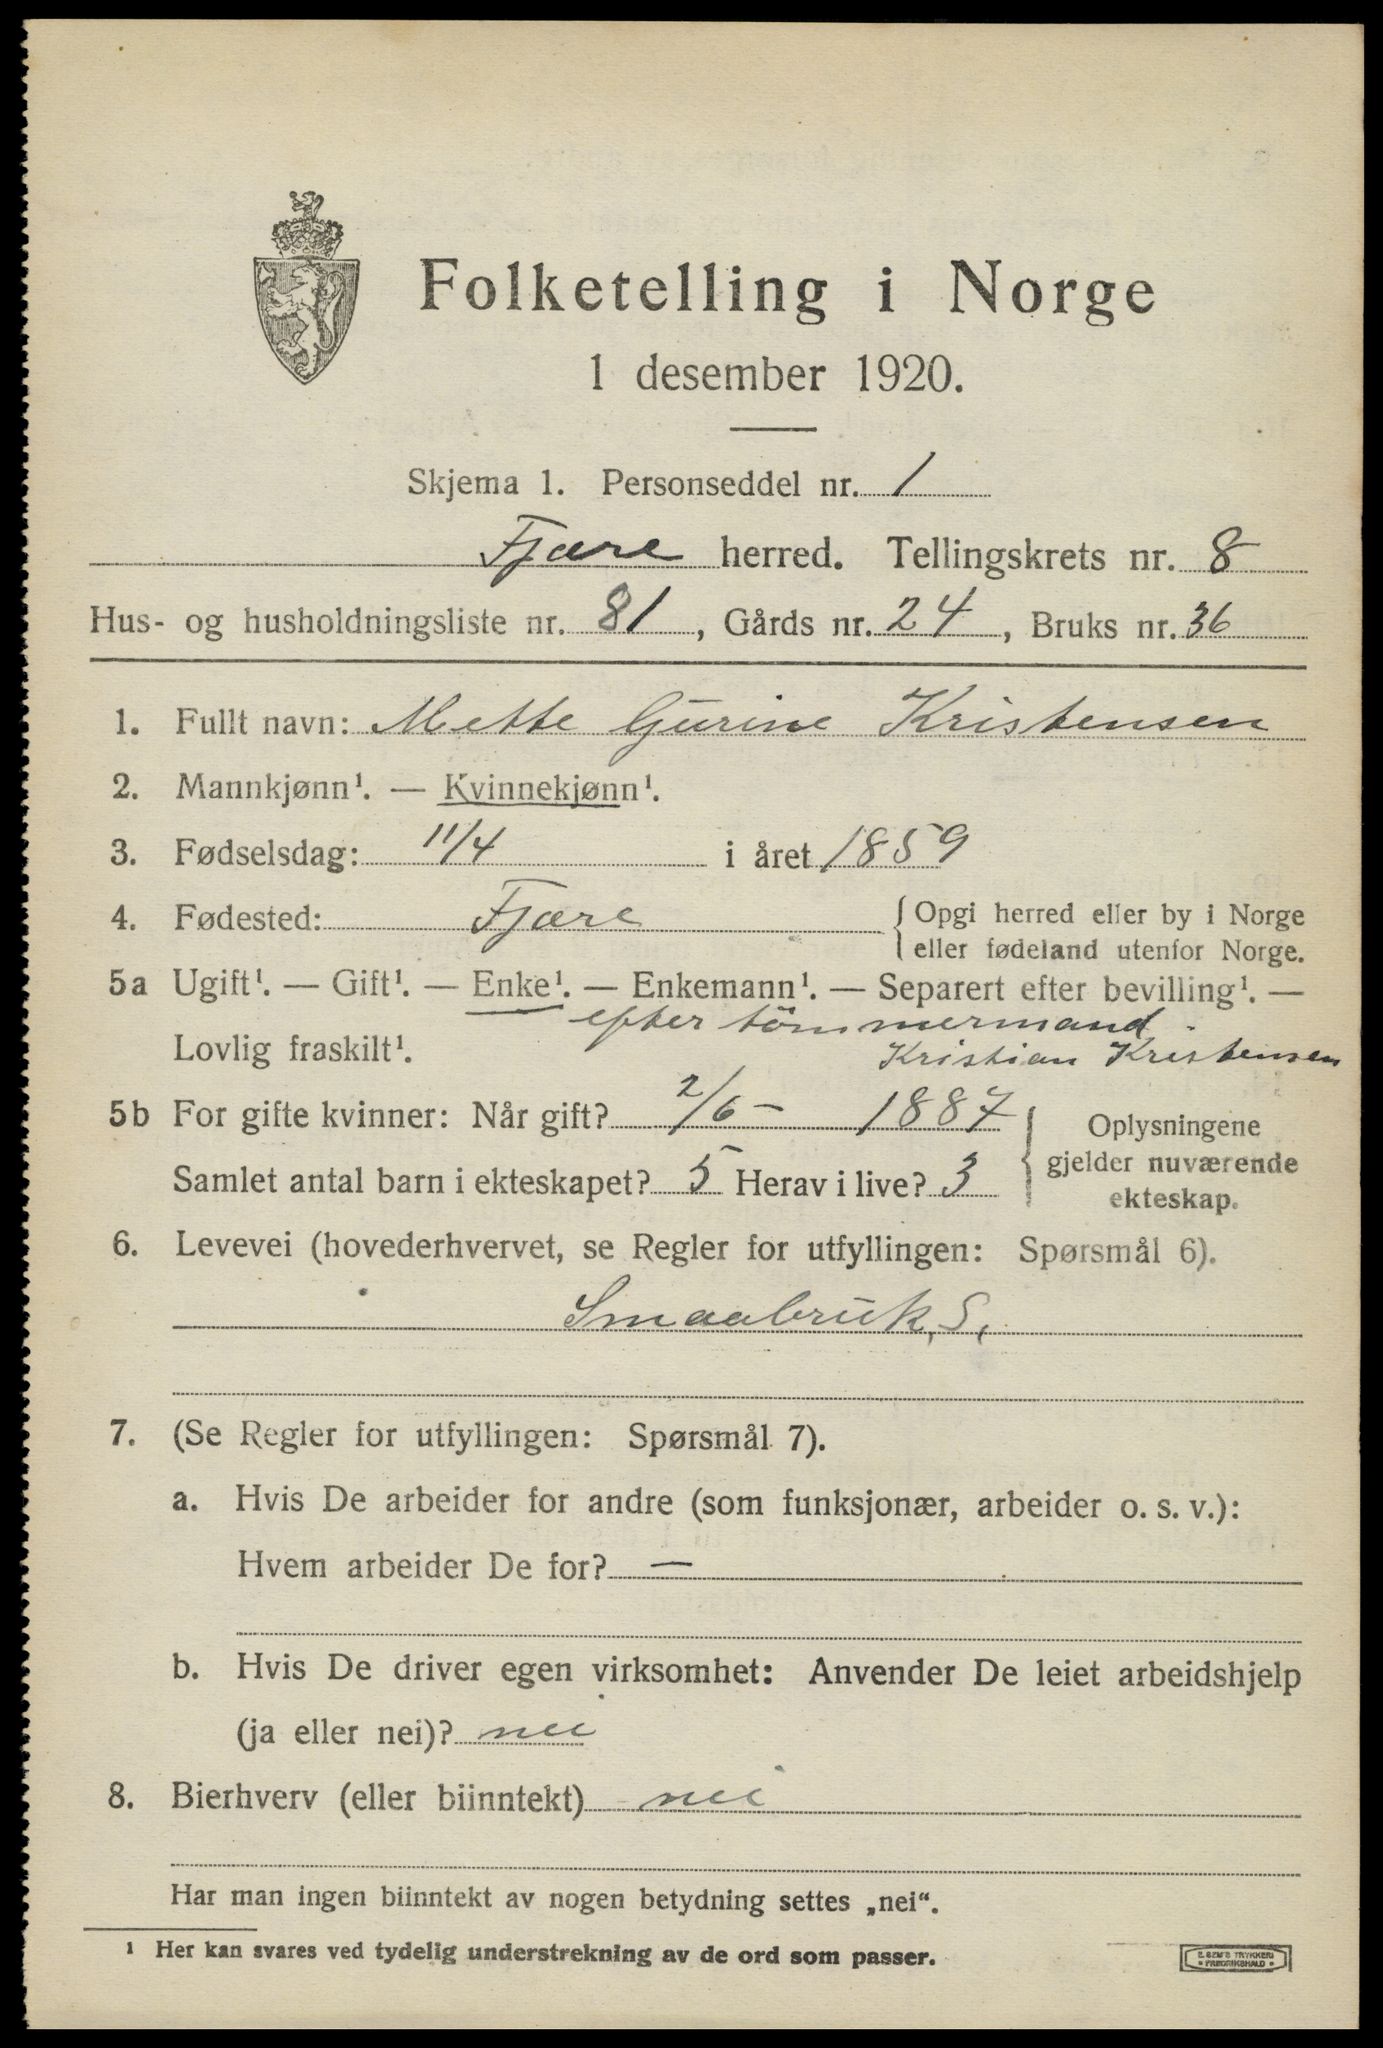 Folketelling i Norge
1 desember 1920.
Skjema 1. Personseddel nr. 1
Fjære herred. Tellingskrets nr. 8
Hus- og husholdningsliste nr. 81, Gårds nr. 24, Bruks nr. 36
1. Fullt navn: Mette Gurine Kristensen
2. Mannkjønn¹. — Kvinnekjønn¹.
3. Fødselsdag: 11/4 i året 1859
4. Fødested: Fjære { Opgi herred eller by i Norge
eller fødeland utenfor Norge.
5a Ugift¹. — Gift¹. — Enke¹. — Enkemann¹. — Separert efter bevilling¹. —
efter tömmermand
Lovlig fraskilt¹. Kristian Kristensen
5b For gifte kvinner: Når gift? 2/6 – 1887 { Oplysningene
gjelder nuværende
Samlet antal barn i ekteskapet? 5 Herav i live? 3 ekteskap.
6. Levevei (hovederhvervet, se Regler for utfyllingen: Spørsmål 6).
Smaabruk, S,
7. (Se Regler for utfyllingen: Spørsmål 7).
a. Hvis De arbeider for andre (som funksjonær, arbeider o. s. v.):
Hvem arbeider De for? —
b. Hvis De driver egen virksomhet: Anvender De leiet arbeidshjelp
(ja eller nei)? nei
8. Bierhverv (eller biinntekt) nei
Har man ingen biinntekt av nogen betydning settes „nei“.
¹ Her kan svares ved tydelig understrekning av de ord som passer.
E. SEM'S TRYKKERI
FREDRIKSHALD